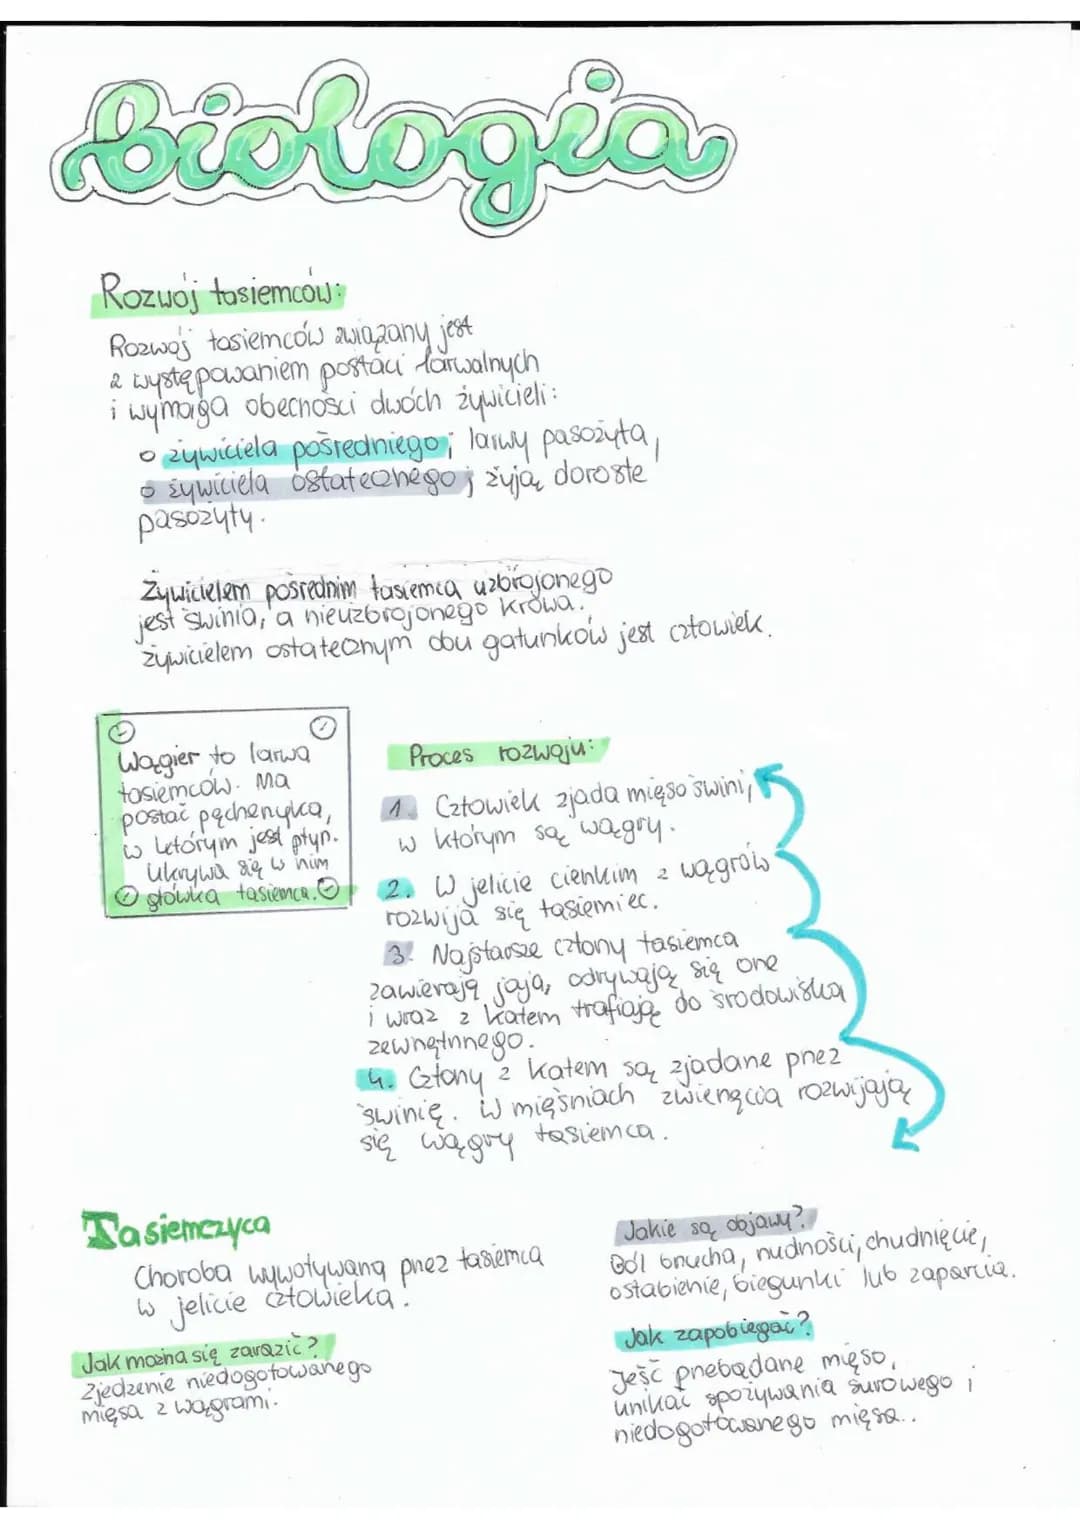 biologia
Rozwój tasiemców:
Rozwój tasiemców związany jest
z występowaniem postaci larwalnych
i wymaga obecności dwóch żywicieli:
o żywiciela pośredniego; larwy pasożyta,
o żywiciela ostatecznego; żyją dorosłe
pasożyty.
Żywicielem pośrednim tasiemca uzbrojonego
jest świnia, a nieuzbrojonego krowa.
Żywicielem ostatecznym obu gatunków jest człowiek.
Wągier to larwa
tasiemców. Ma
postać pęcherzyka,
w którym jest płyn.
Ukrywa się w nim
główka tasiemca.
Proces rozwoju:
1. Człowiek zjada mięso świni,
w którym są wągry.
2. W jelicie cienkim z wągrów
rozwija się tasiemiec.
3. Najstarsze człony tasiemca
zawierają jaja, odrywają się one
i wraz z kałem trafiają do środowiska
zewnętrznego.
4. Człony z kałem są zjadane przez
świnię. W mięśniach zwierzęcia rozwijają
się wągry tasiemca.
Tasiemczyca
Choroba wywoływana przez tasiemca
w jelicie człowieka.
Jak można się zarazić?
Zjedzenie niedogotowanego
mięsa z wągrami.
Jakie są objawy?
Ból brzucha, nudności, chudnięcie,
osłabienie, biegunki lub zaparcia.
Jak zapobiegać?
Jeść przebadane mięso,
unikać spożywania surowego i
niedogotowanego mięsa..